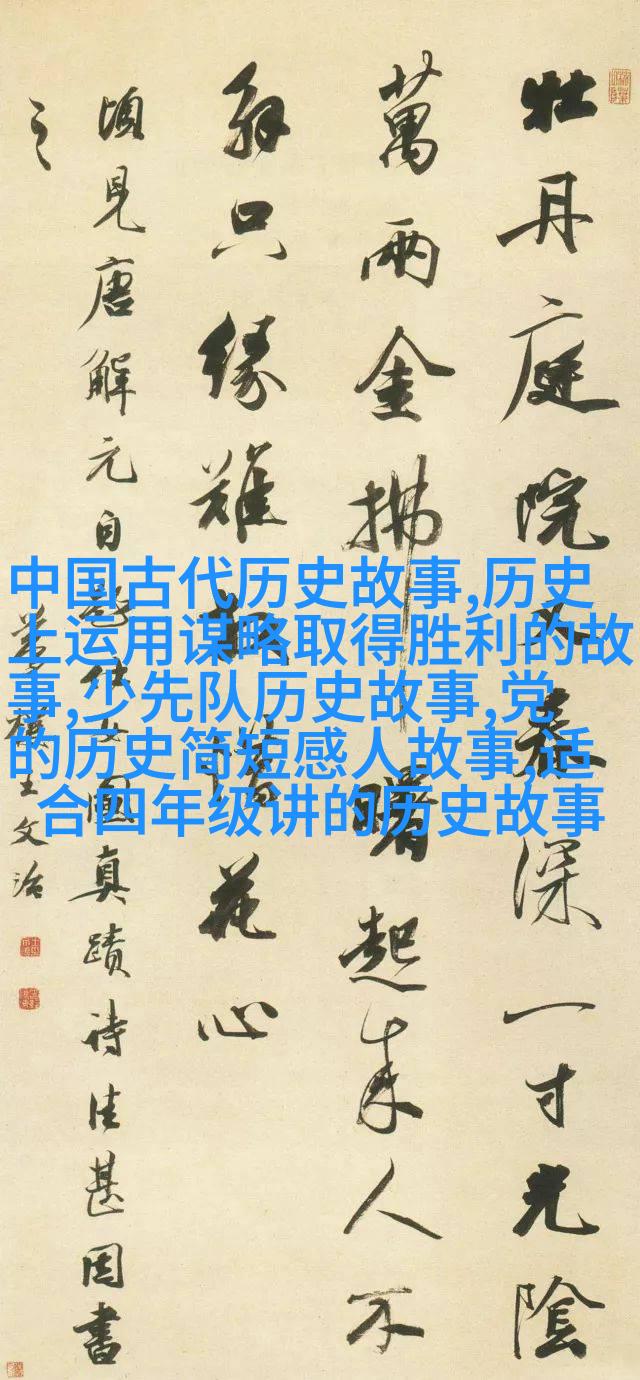 牡丹庭院又春深一寸光陰
萬兩金拂曙起來人不
解只緣難放惜花心
頃見唐解元自題仕女圖真蹟詩佳甚因書
之
夢樓王文治
中国古代历史故事,历史
上运用谋略取得胜利的故
事,少先队历史故事,党
的历史简短感人故事,适
合四年级讲的历史故事